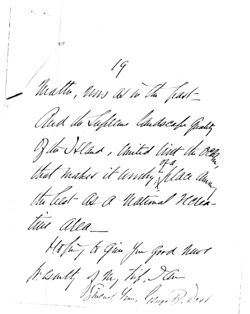 19
matter, now as in the past —
And the Supreme landscape quality
of the Island, United with the Ocean,
that makes it worthy of a place among
the best as a National Recrea-
tive area —
Hoping to give you good news
of my trip, I am
Sincerely yours, George B. Dorr